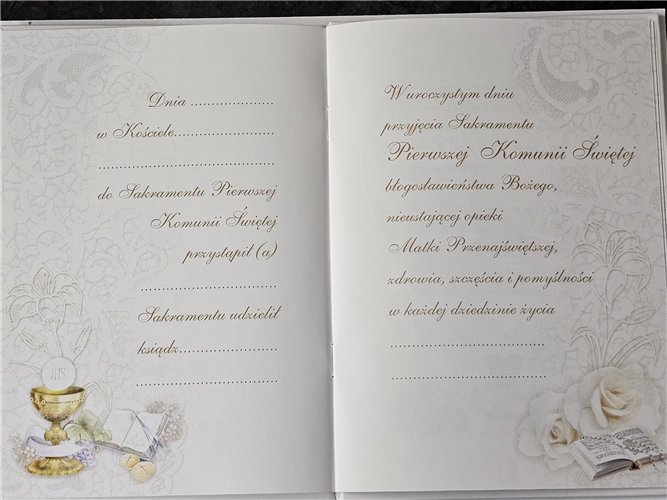 Dnia .....................
w Kościele.........................
.............................................
do Sakramentu Pierwszej
Komunii Świętej
przystąpił (a)
...................................
Sakramentu udzielił
ksiądz.........................
...................................
W uroczystym dniu
przyjęcia Sakramentu
Pierwszej Komunii Świętej
błogosławieństwa Bożego,
nieustającej opieki
Matki Przenajświętszej,
zdrowia, szczęścia i pomyślności
w każdej dziedzinie życia
.......................................
.......................................